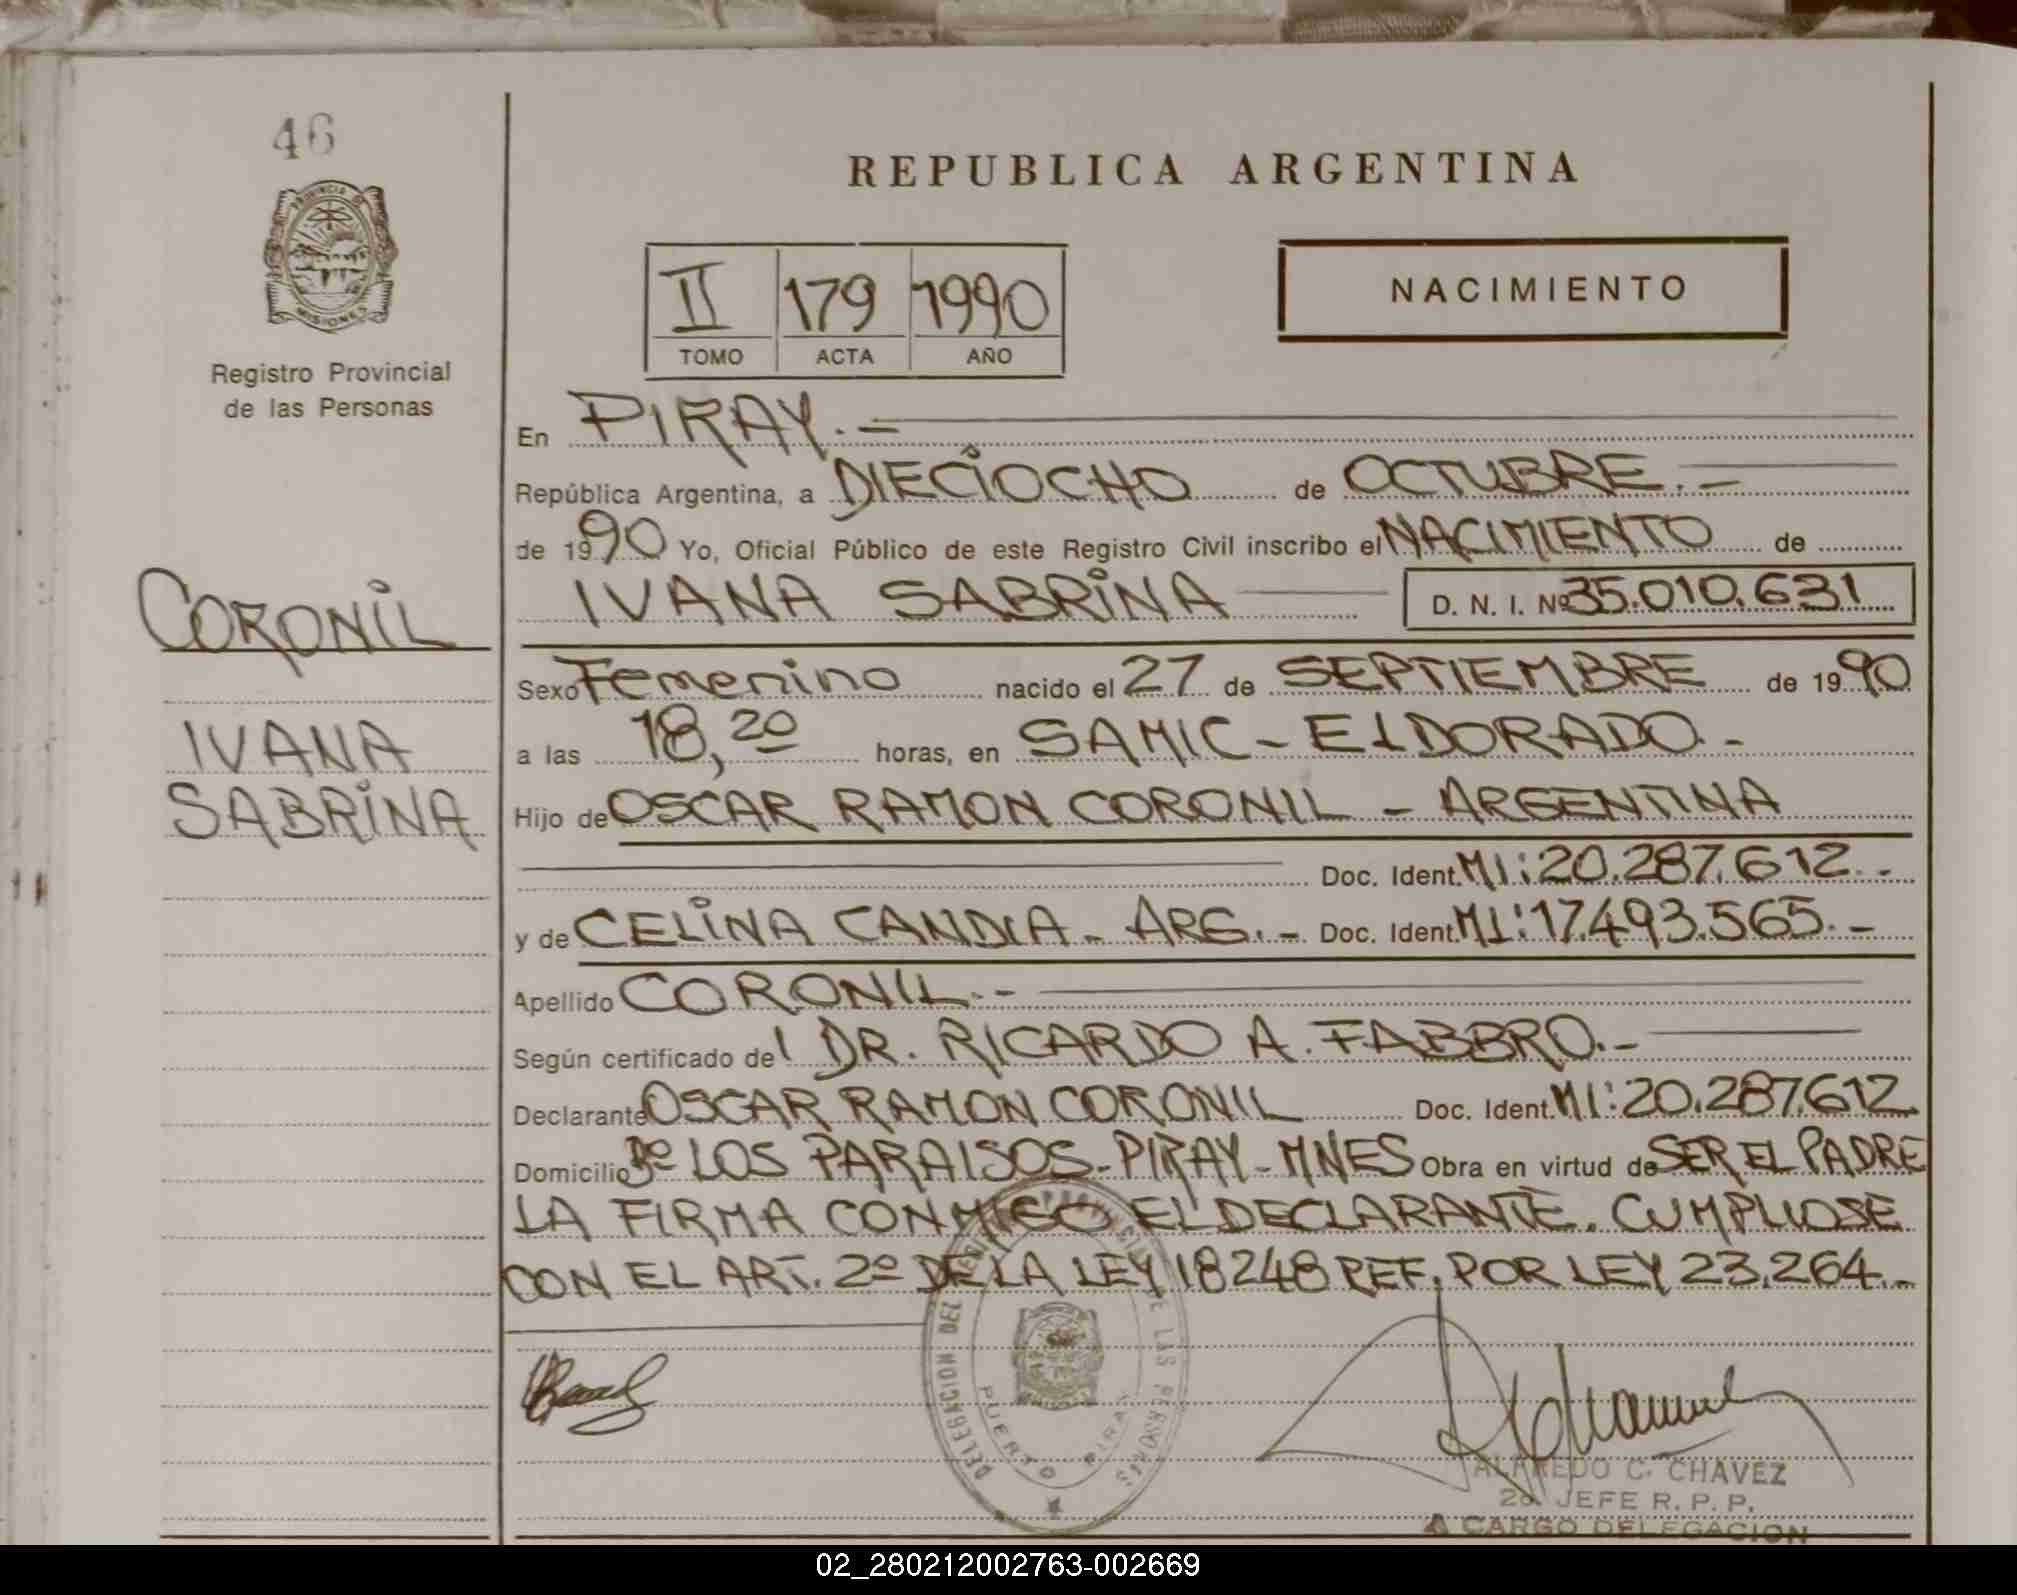 46
PROVINCIA DE
MISIONES
Registro Provincial
de las Personas
CORONIL
IVANA
SABRINA
REPUBLICA ARGENTINA
II 179 1990
TOMO ACTA AÑO
NACIMIENTO
En PIRAY.-
República Argentina, a DIECIOCHO de OCTUBRE.-
de 1990 Yo, Oficial Público de este Registro Civil inscribo el NACIMIENTO de
IVANA SABRINA D. N. I. Nº 35.010.631
Sexo Femenino nacido el 27 de SEPTIEMBRE de 1990
a las 18,20 horas, en SAMIC - ELDORADO.-
Hijo de OSCAR RAMON CORONIL - ARGENTINA
Doc. Ident. MI: 20.287.612.-
y de CELINA CANDIA - ARG.- Doc. Ident. MI: 17.493.565.-
Apellido CORONIL.-
Según certificado del DR. RICARDO A. FABBRO.-
Declarante OSCAR RAMON CORONIL Doc. Ident. MI: 20.287.612
Domicilio Bº LOS PARAISOS - PIRAY - MNES Obra en virtud de SER EL PADRE
LA FIRMA CONMIGO EL DECLARANTE. CUMPLIOSE
CON EL ART. 2º DE LA LEY 18248 REF. POR LEY 23.264.-
DELEGACION DEL REGISTRO PROVINCIAL DE LAS PERSONAS
PUERTO PIRAY
ALFREDO C. CHAVEZ
2do JEFE R. P. P.
A CARGO DELEGACION
02_280212002763-002669